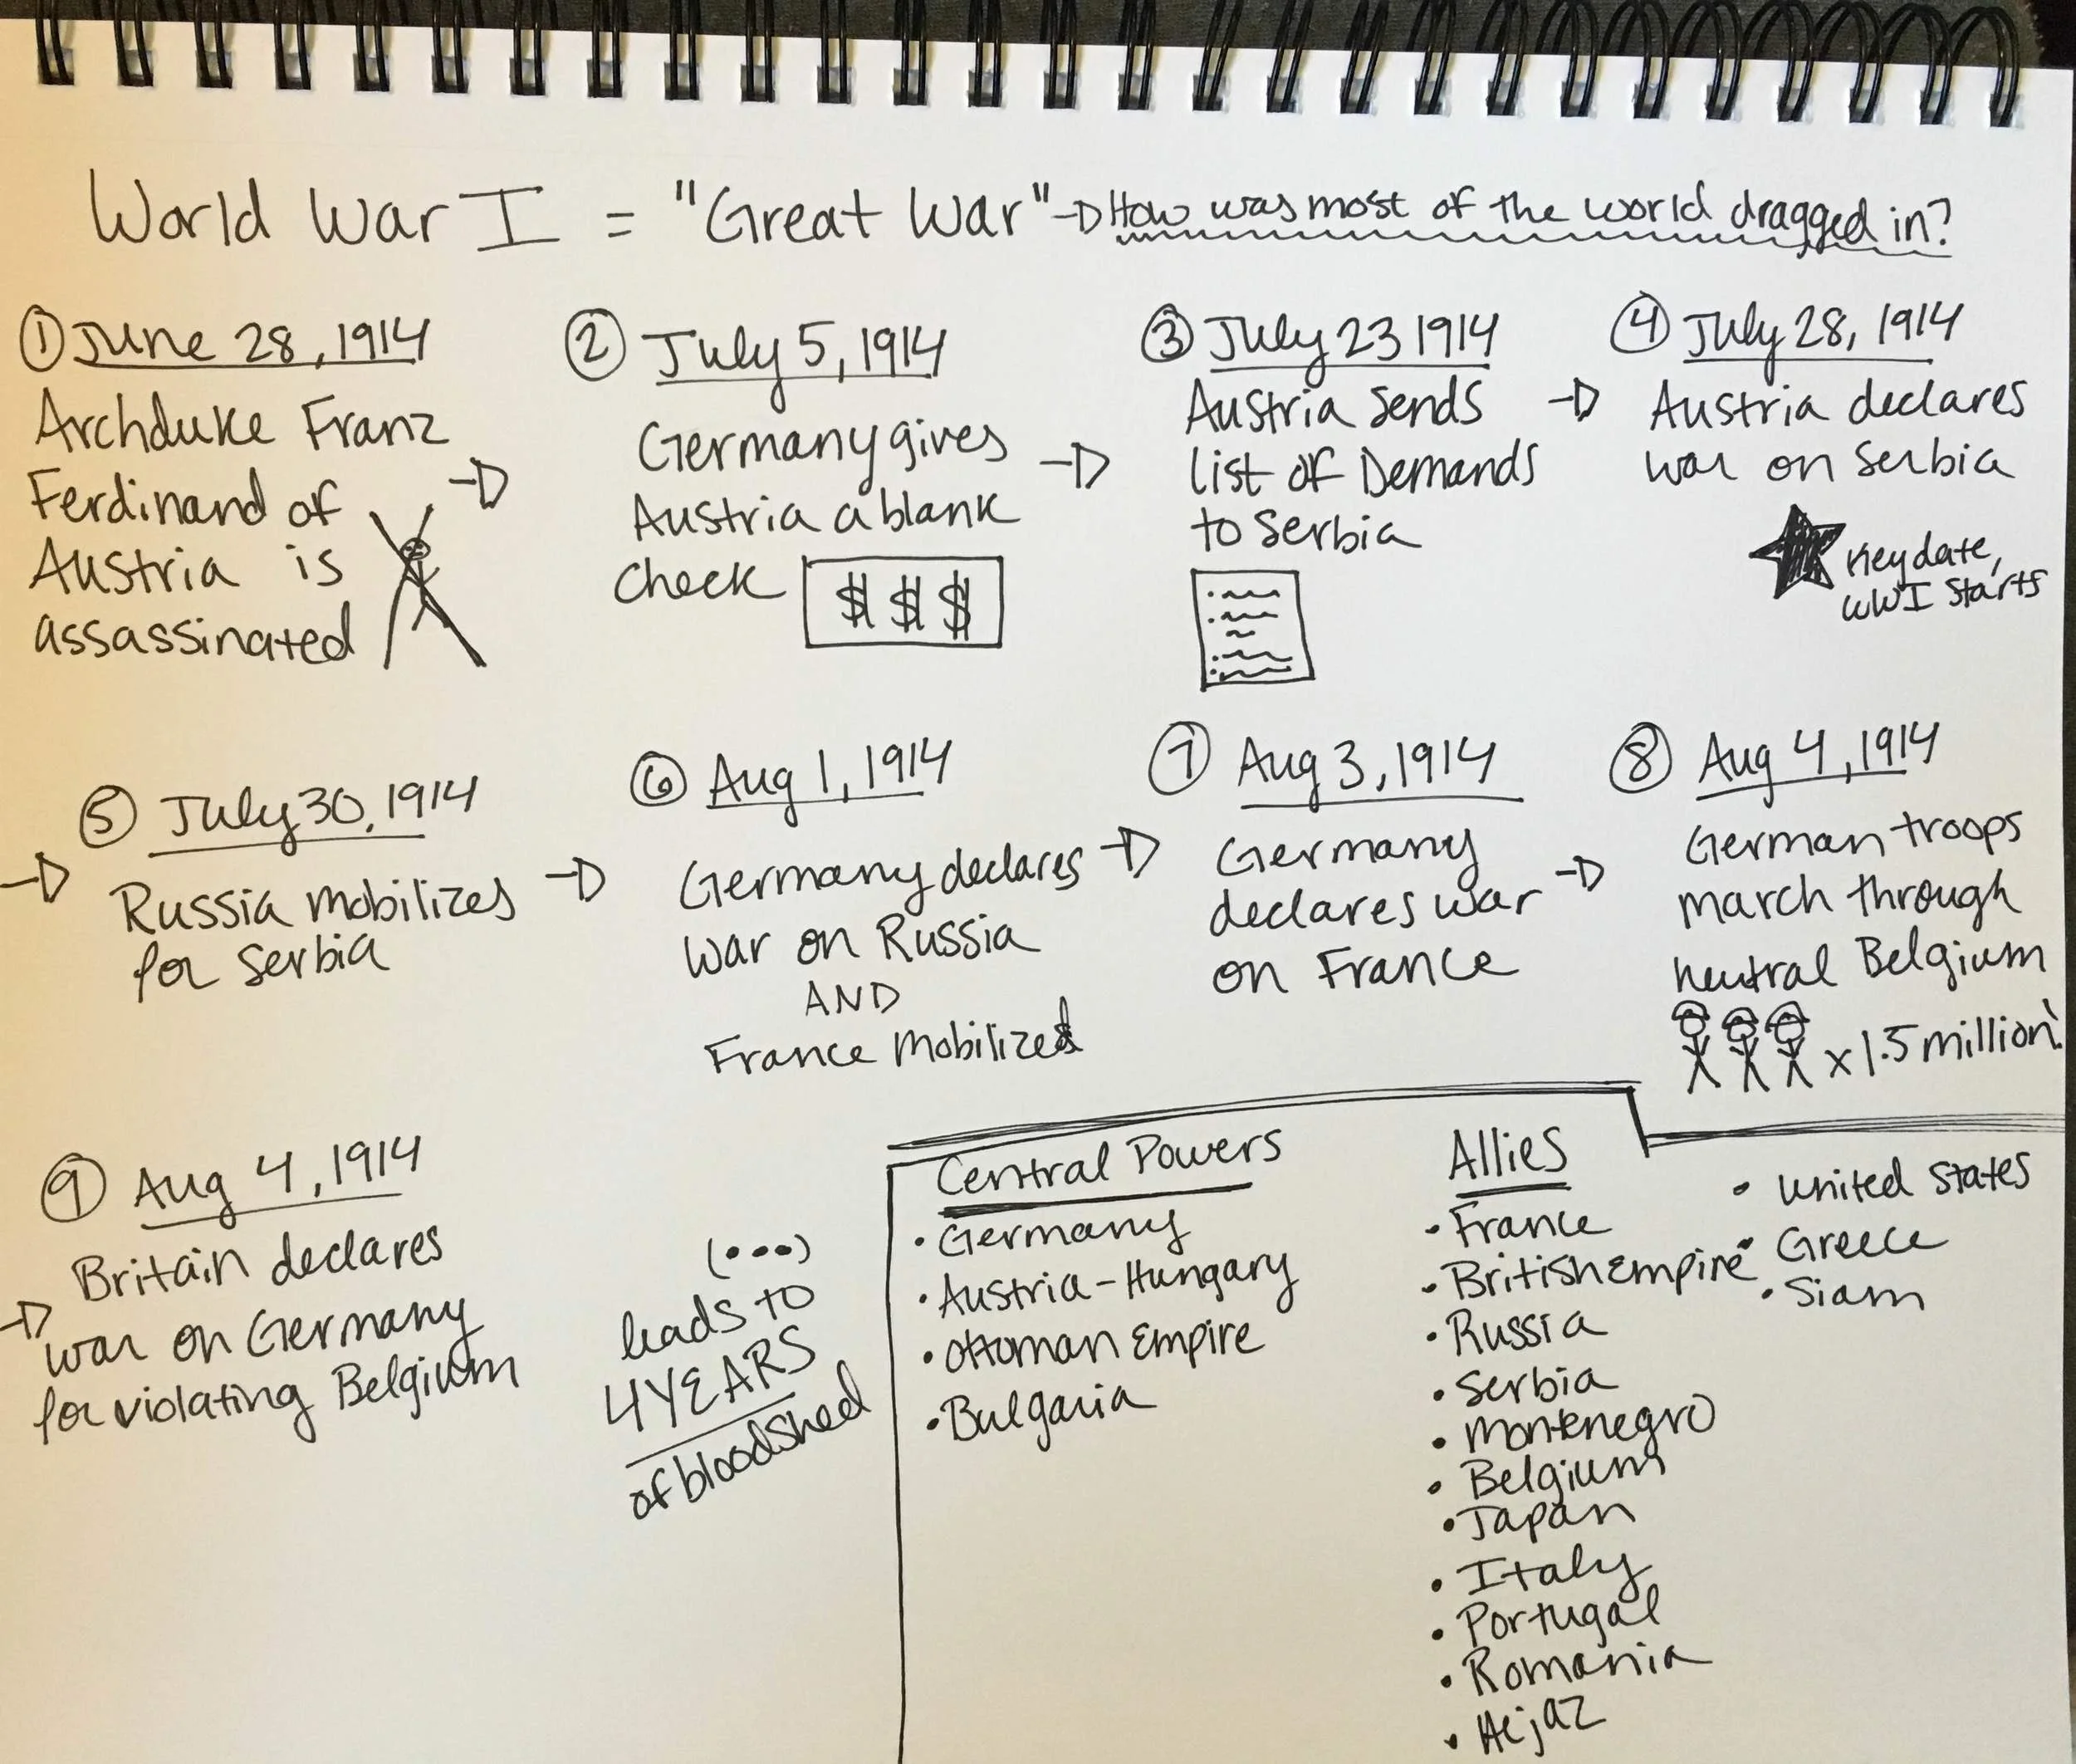 World War I = "Great War" → How was most of the world dragged in?
① June 28, 1914
Archduke Franz
Ferdinand of
Austria is
assassinated
→
② July 5, 1914
Germany gives
Austria a blank
check
$ $ $
→
③ July 23 1914
Austria sends
list of Demands
to Serbia
→
④ July 28, 1914
Austria declares
war on Serbia
Key date,
WWI starts
→
⑤ July 30, 1914
Russia mobilizes
for Serbia
→
⑥ Aug 1, 1914
Germany declares
war on Russia
AND
France mobilized
→
⑦ Aug 3, 1914
Germany
declares war
on France
→
⑧ Aug 4, 1914
German troops
march through
neutral Belgium
x 1.5 million!
→
⑨ Aug 4, 1914
Britain declares
war on Germany
for violating Belgium
(...)
leads to
4 YEARS
of bloodshed
Central Powers
• Germany
• Austria-Hungary
• Ottoman Empire
• Bulgaria
Allies
• France
• British Empire
• Russia
• Serbia
• Montenegro
• Belgium
• Japan
• Italy
• Portugal
• Romania
• Hejaz
• United States
• Greece
• Siam